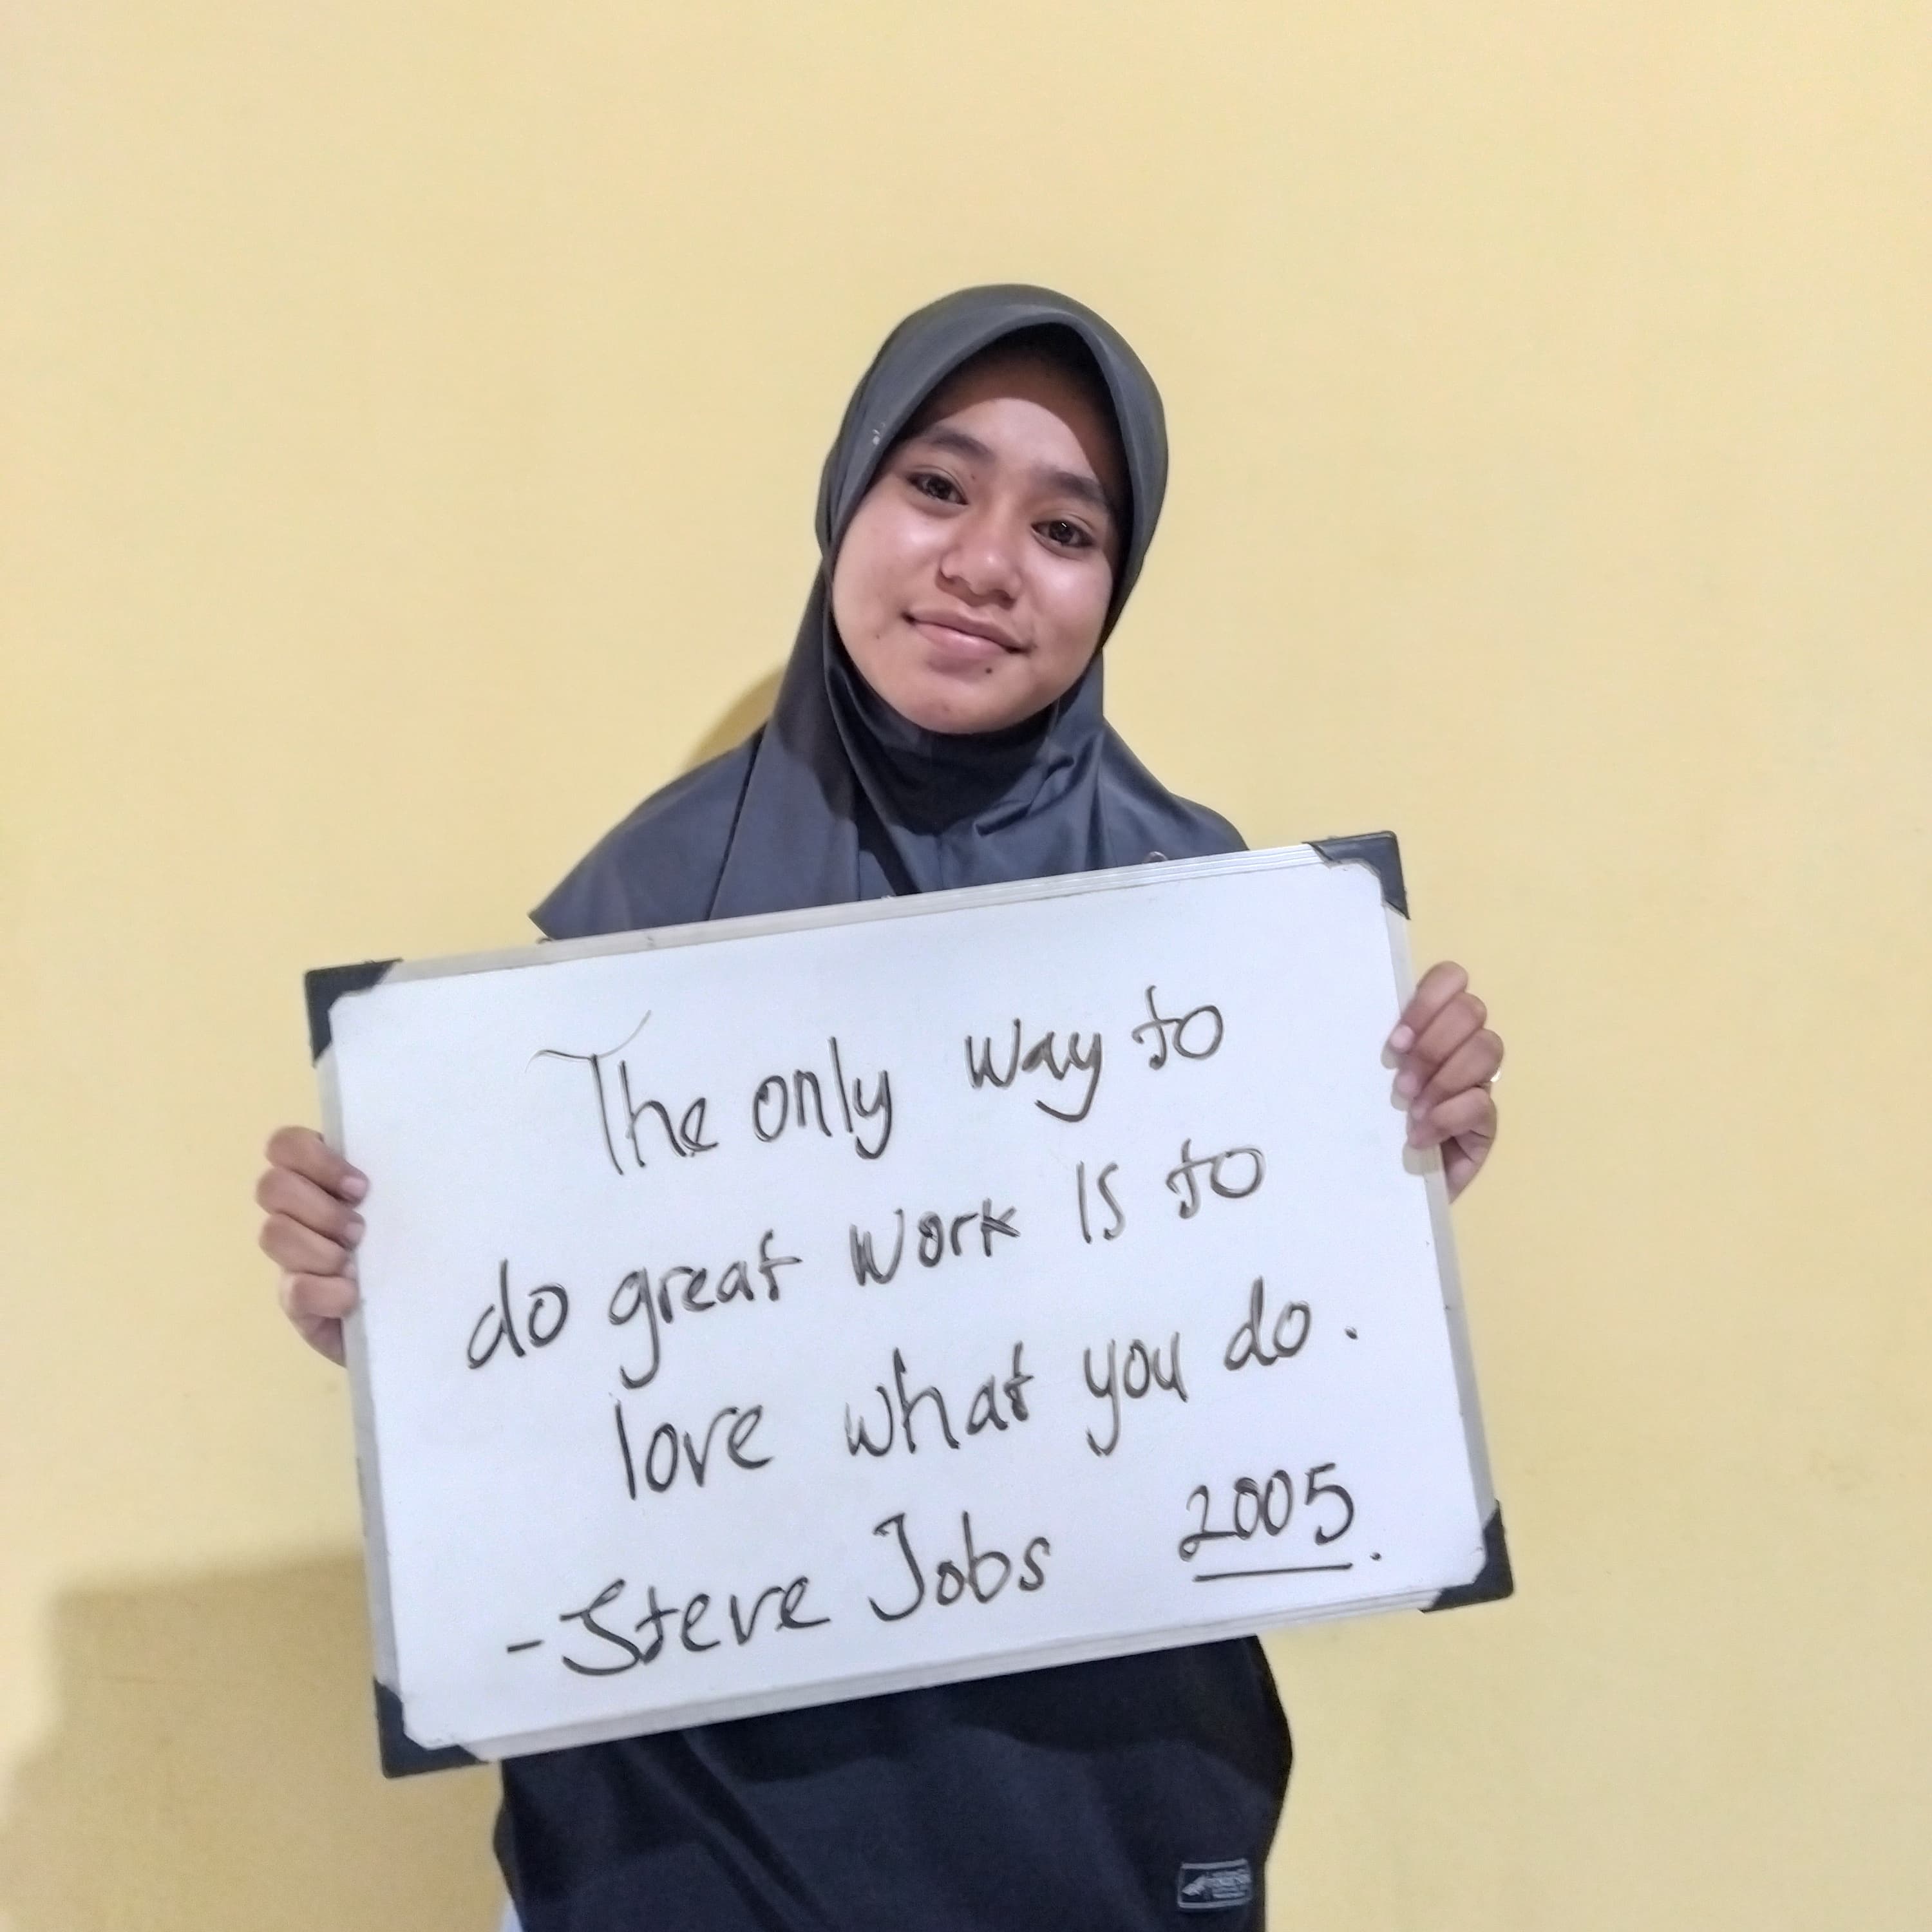 The only way to
do great work is to
love what you do.
- Steve Jobs 2005.